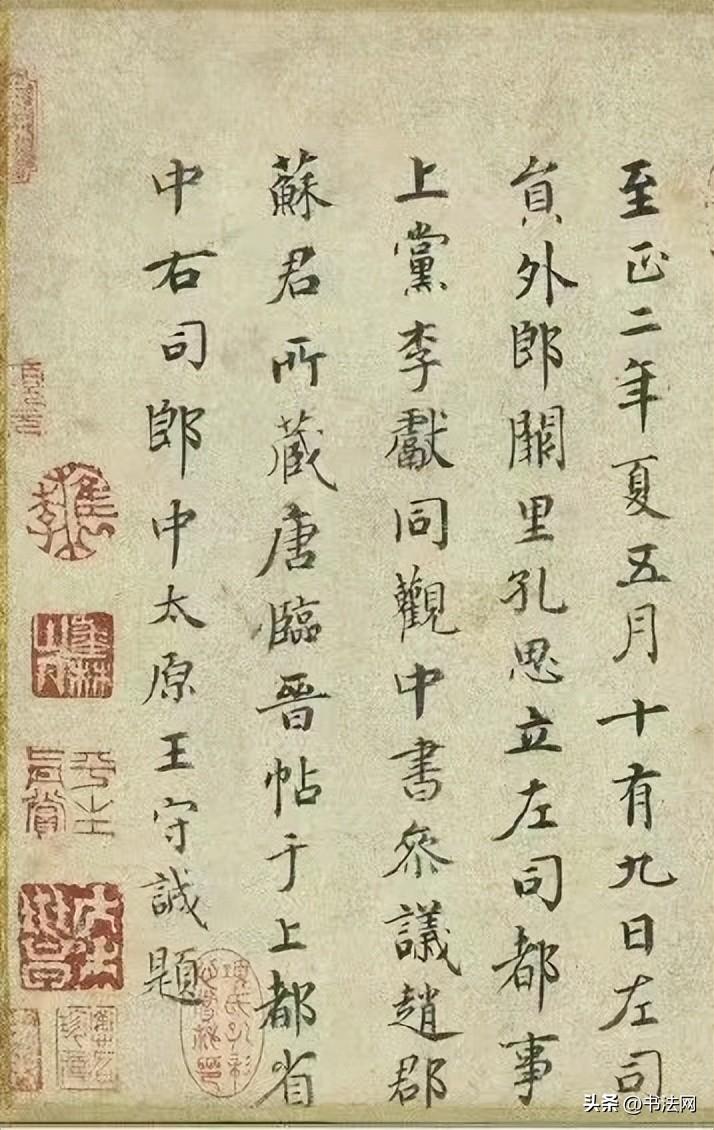 至正二年夏五月十有九日左司
員外郎闕里孔思立左司都事
上黨李獻同觀中書叅議趙郡
蘇君所藏唐臨晉帖于上都省
中右司郎中太原王守誠題
头条 @书法网